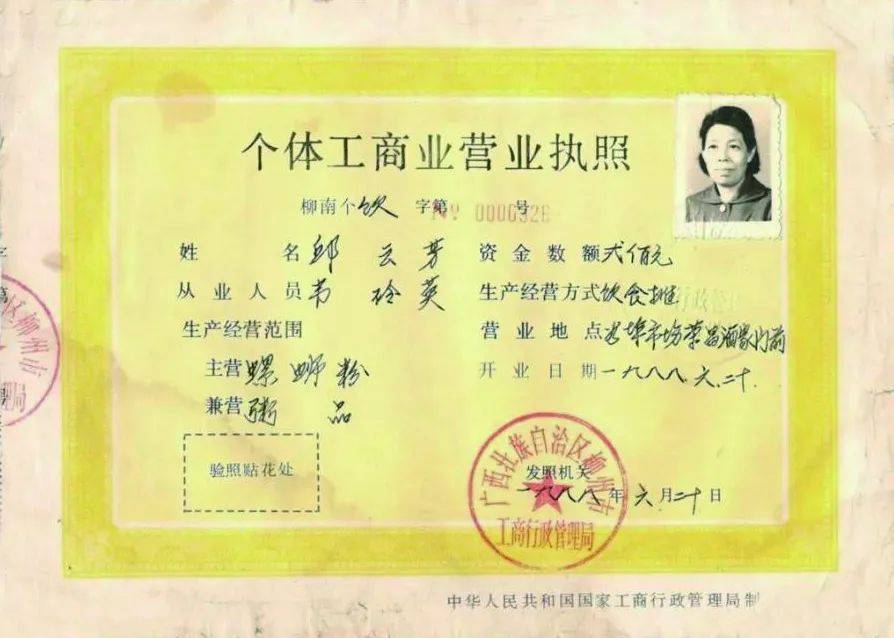 个体工商业营业执照
柳南个饮字第 NY 0000926 号
姓名 邱云芳 资金数额 弍佰元
从业人员 韦玲英 生产经营方式 饮食摊
生产经营范围 营业地点 市场荣昌酒家门前
主营 螺蛳粉 开业日期 一九八八.六.二十.
兼营 粥品
验照贴花处
发照机关
一九八八年六月二十日
广西壮族自治区柳州市
工商行政管理局
区柳州市
理局
中华人民共和国国家工商行政管理局制